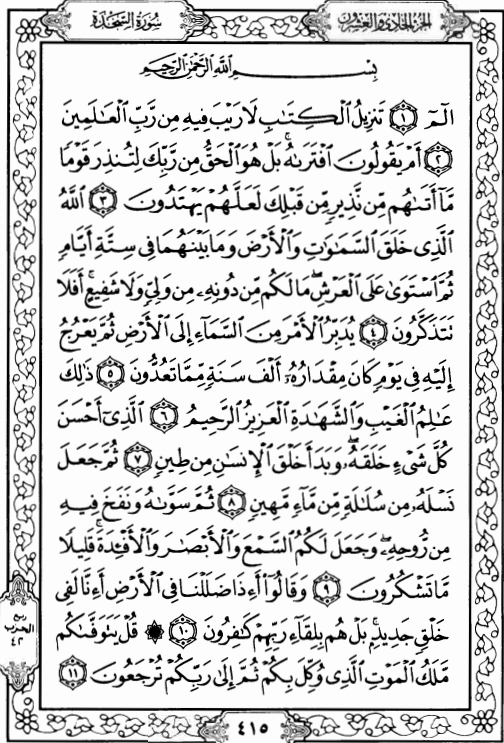 سُورَةُ السَّجْدَةِ
الجزء الحادي والعشرون
بِسْمِ ٱللَّهِ ٱلرَّحْمَٰنِ ٱلرَّحِيمِ
الٓمٓ ۝١ تَنزِيلُ ٱلْكِتَٰبِ لَا رَيْبَ فِيهِ مِن رَّبِّ ٱلْعَٰلَمِينَ
۝٢ أَمْ يَقُولُونَ ٱفْتَرَىٰهُ ۚ بَلْ هُوَ ٱلْحَقُّ مِن رَّبِّكَ لِتُنذِرَ قَوْمًا
مَّآ أَتَىٰهُم مِّن نَّذِيرٍ مِّن قَبْلِكَ لَعَلَّهُمْ يَهْتَدُونَ ۝٣ ٱللَّهُ
ٱلَّذِى خَلَقَ ٱلسَّمَٰوَٰتِ وَٱلْأَرْضَ وَمَا بَيْنَهُمَا فِى سِتَّةِ أَيَّامٍ
ثُمَّ ٱسْتَوَىٰ عَلَى ٱلْعَرْشِ ۖ مَا لَكُم مِّن دُونِهِۦ مِن وَلِىٍّ وَلَا شَفِيعٍ ۚ أَفَلَا
تَتَذَكَّرُونَ ۝٤ يُدَبِّرُ ٱلْأَمْرَ مِنَ ٱلسَّمَآءِ إِلَى ٱلْأَرْضِ ثُمَّ يَعْرُجُ
إِلَيْهِ فِى يَوْمٍ كَانَ مِقْدَارُهُۥٓ أَلْفَ سَنَةٍ مِّمَّا تَعُدُّونَ ۝٥ ذَٰلِكَ
عَٰلِمُ ٱلْغَيْبِ وَٱلشَّهَٰدَةِ ٱلْعَزِيزُ ٱلرَّحِيمُ ۝٦ ٱلَّذِىٓ أَحْسَنَ
كُلَّ شَىْءٍ خَلَقَهُۥ ۖ وَبَدَأَ خَلْقَ ٱلْإِنسَٰنِ مِن طِينٍ ۝٧ ثُمَّ جَعَلَ
نَسْلَهُۥ مِن سُلَٰلَةٍ مِّن مَّآءٍ مَّهِينٍ ۝٨ ثُمَّ سَوَّىٰهُ وَنَفَخَ فِيهِ
مِن رُّوحِهِۦ ۖ وَجَعَلَ لَكُمُ ٱلسَّمْعَ وَٱلْأَبْصَٰرَ وَٱلْأَفْـِٔدَةَ ۚ قَلِيلًا
مَّا تَشْكُرُونَ ۝٩ وَقَالُوٓا۟ أَءِذَا ضَلَلْنَا فِى ٱلْأَرْضِ أَءِنَّا لَفِى
خَلْقٍ جَدِيدٍۭ ۚ بَلْ هُم بِلِقَآءِ رَبِّهِمْ كَٰفِرُونَ ۝١٠ ۞ قُلْ يَتَوَفَّىٰكُم
مَّلَكُ ٱلْمَوْتِ ٱلَّذِى وُكِّلَ بِكُمْ ثُمَّ إِلَىٰ رَبِّكُمْ تُرْجَعُونَ ۝١١
ربع
الحزب
٤٢
٤١٥